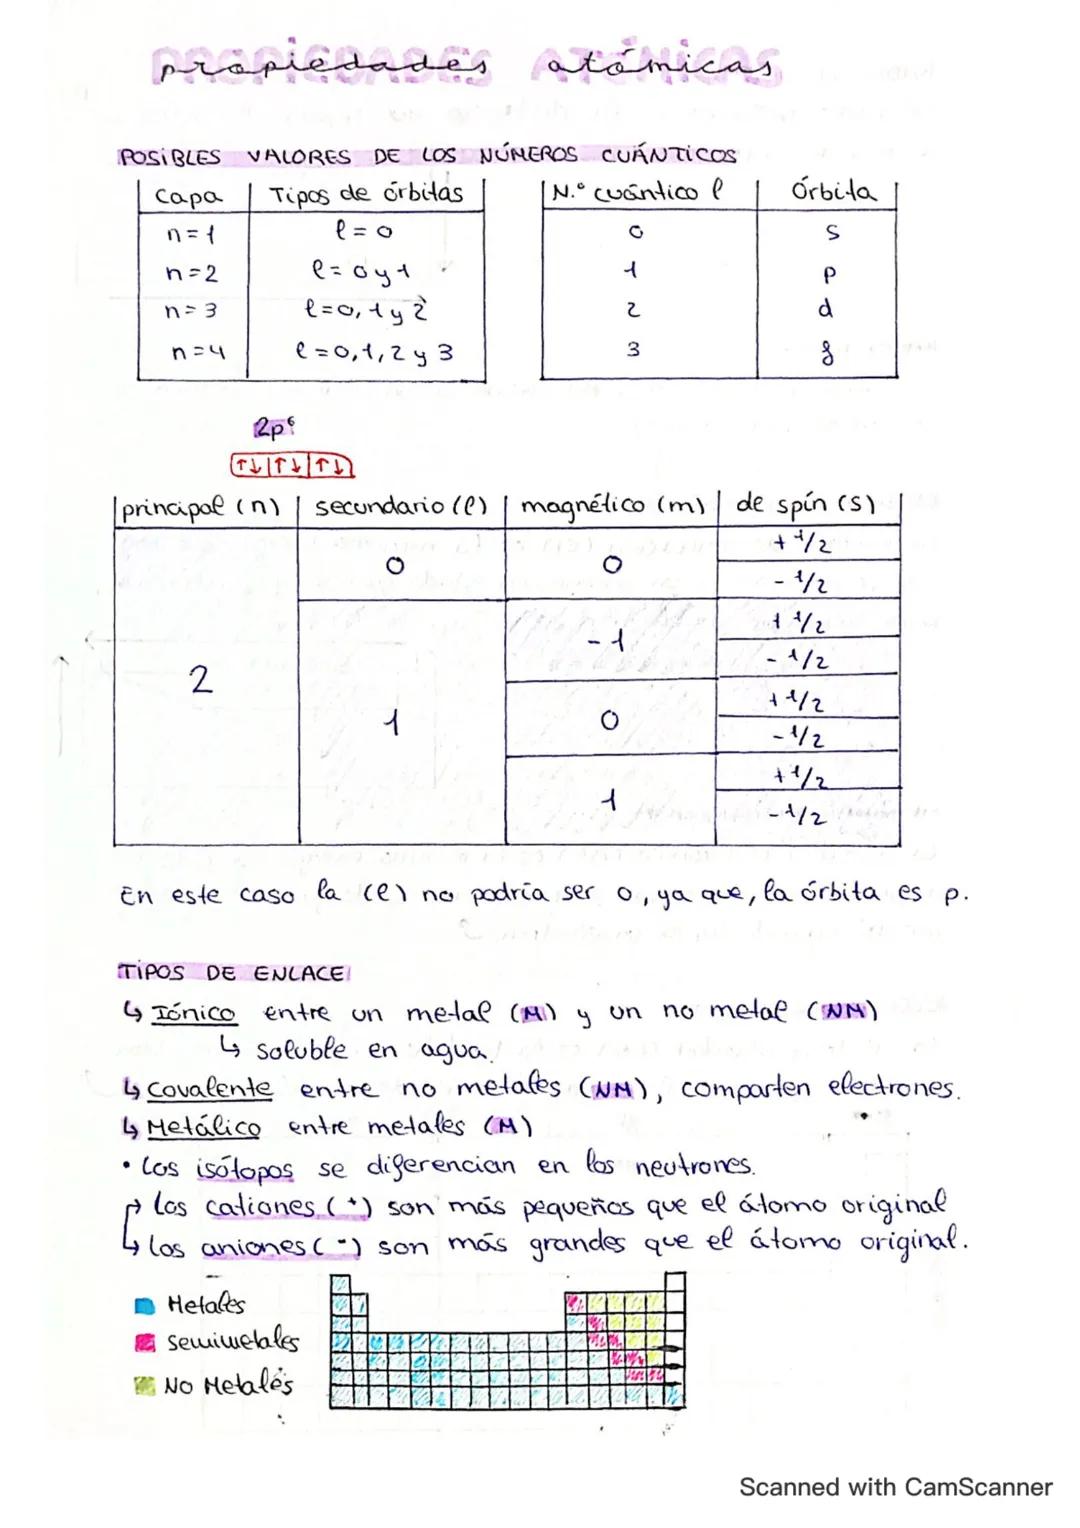 propiedades atómicas
POSIBLES VALORES DE LOS NÚMEROS CUÁNTICOS
Capa Tipos de órbitas
n=1 l=0
n=2 l=0 y 1
n=3 l=0, 1 y 2
n=4 l=0, 1, 2 y 3
N.º cuántico l Órbita
0 s
1 p
2 d
3 f
2p⁶
↑↓ ↑↓ ↑↓
principal (n) secundario (l) magnético (m) de spín (s)
2
0 0 +1/2
-1/2
1 -1 +1/2
-1/2
0 +1/2
-1/2
1 +1/2
-1/2
En este caso la (l) no podría ser 0, ya que, la órbita es p.
TIPOS DE ENLACE
↳ Iónico entre un metal (M) y un no metal (NM)
↳ soluble en agua.
↳ Covalente entre no metales (NM), comparten electrones.
↳ Metálico entre metales (M)
• Los isótopos se diferencian en los neutrones.
↱ Los cationes (+) son más pequeños que el átomo original
↳ Los aniones (-) son más grandes que el átomo original.
Metales
Semimetales
No Metales
Scanned with CamScanner